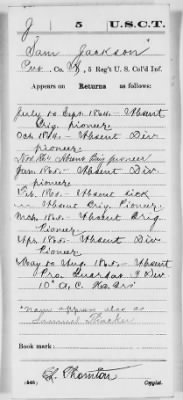 J 5 U.S.C.T.
Sam Jackson
Pvt, Co. H, 5 Reg't U. S. Col'd Inf.
Appears on Returns as follows:
July to Sept. 1864.- Absent
Brig. pioneer
Oct 1864.- Absent Div
pioneer.
Nov Absent Brig pioneer
Jan. 1865.- Absent Div.
pioneer
Feb. 1865.- Absent sick
Absent Brig. Pioneer.
Mch. 1865.- Absent Brig
Pioneer
Apr. 1865.- Absent Div
Pioneer.
May to Aug. 1865.- Absent
Pro. Guard 3 Div
10" A. C.
*Name appears also as
Samuel
Book mark:
Thornton
(546) Copyist.